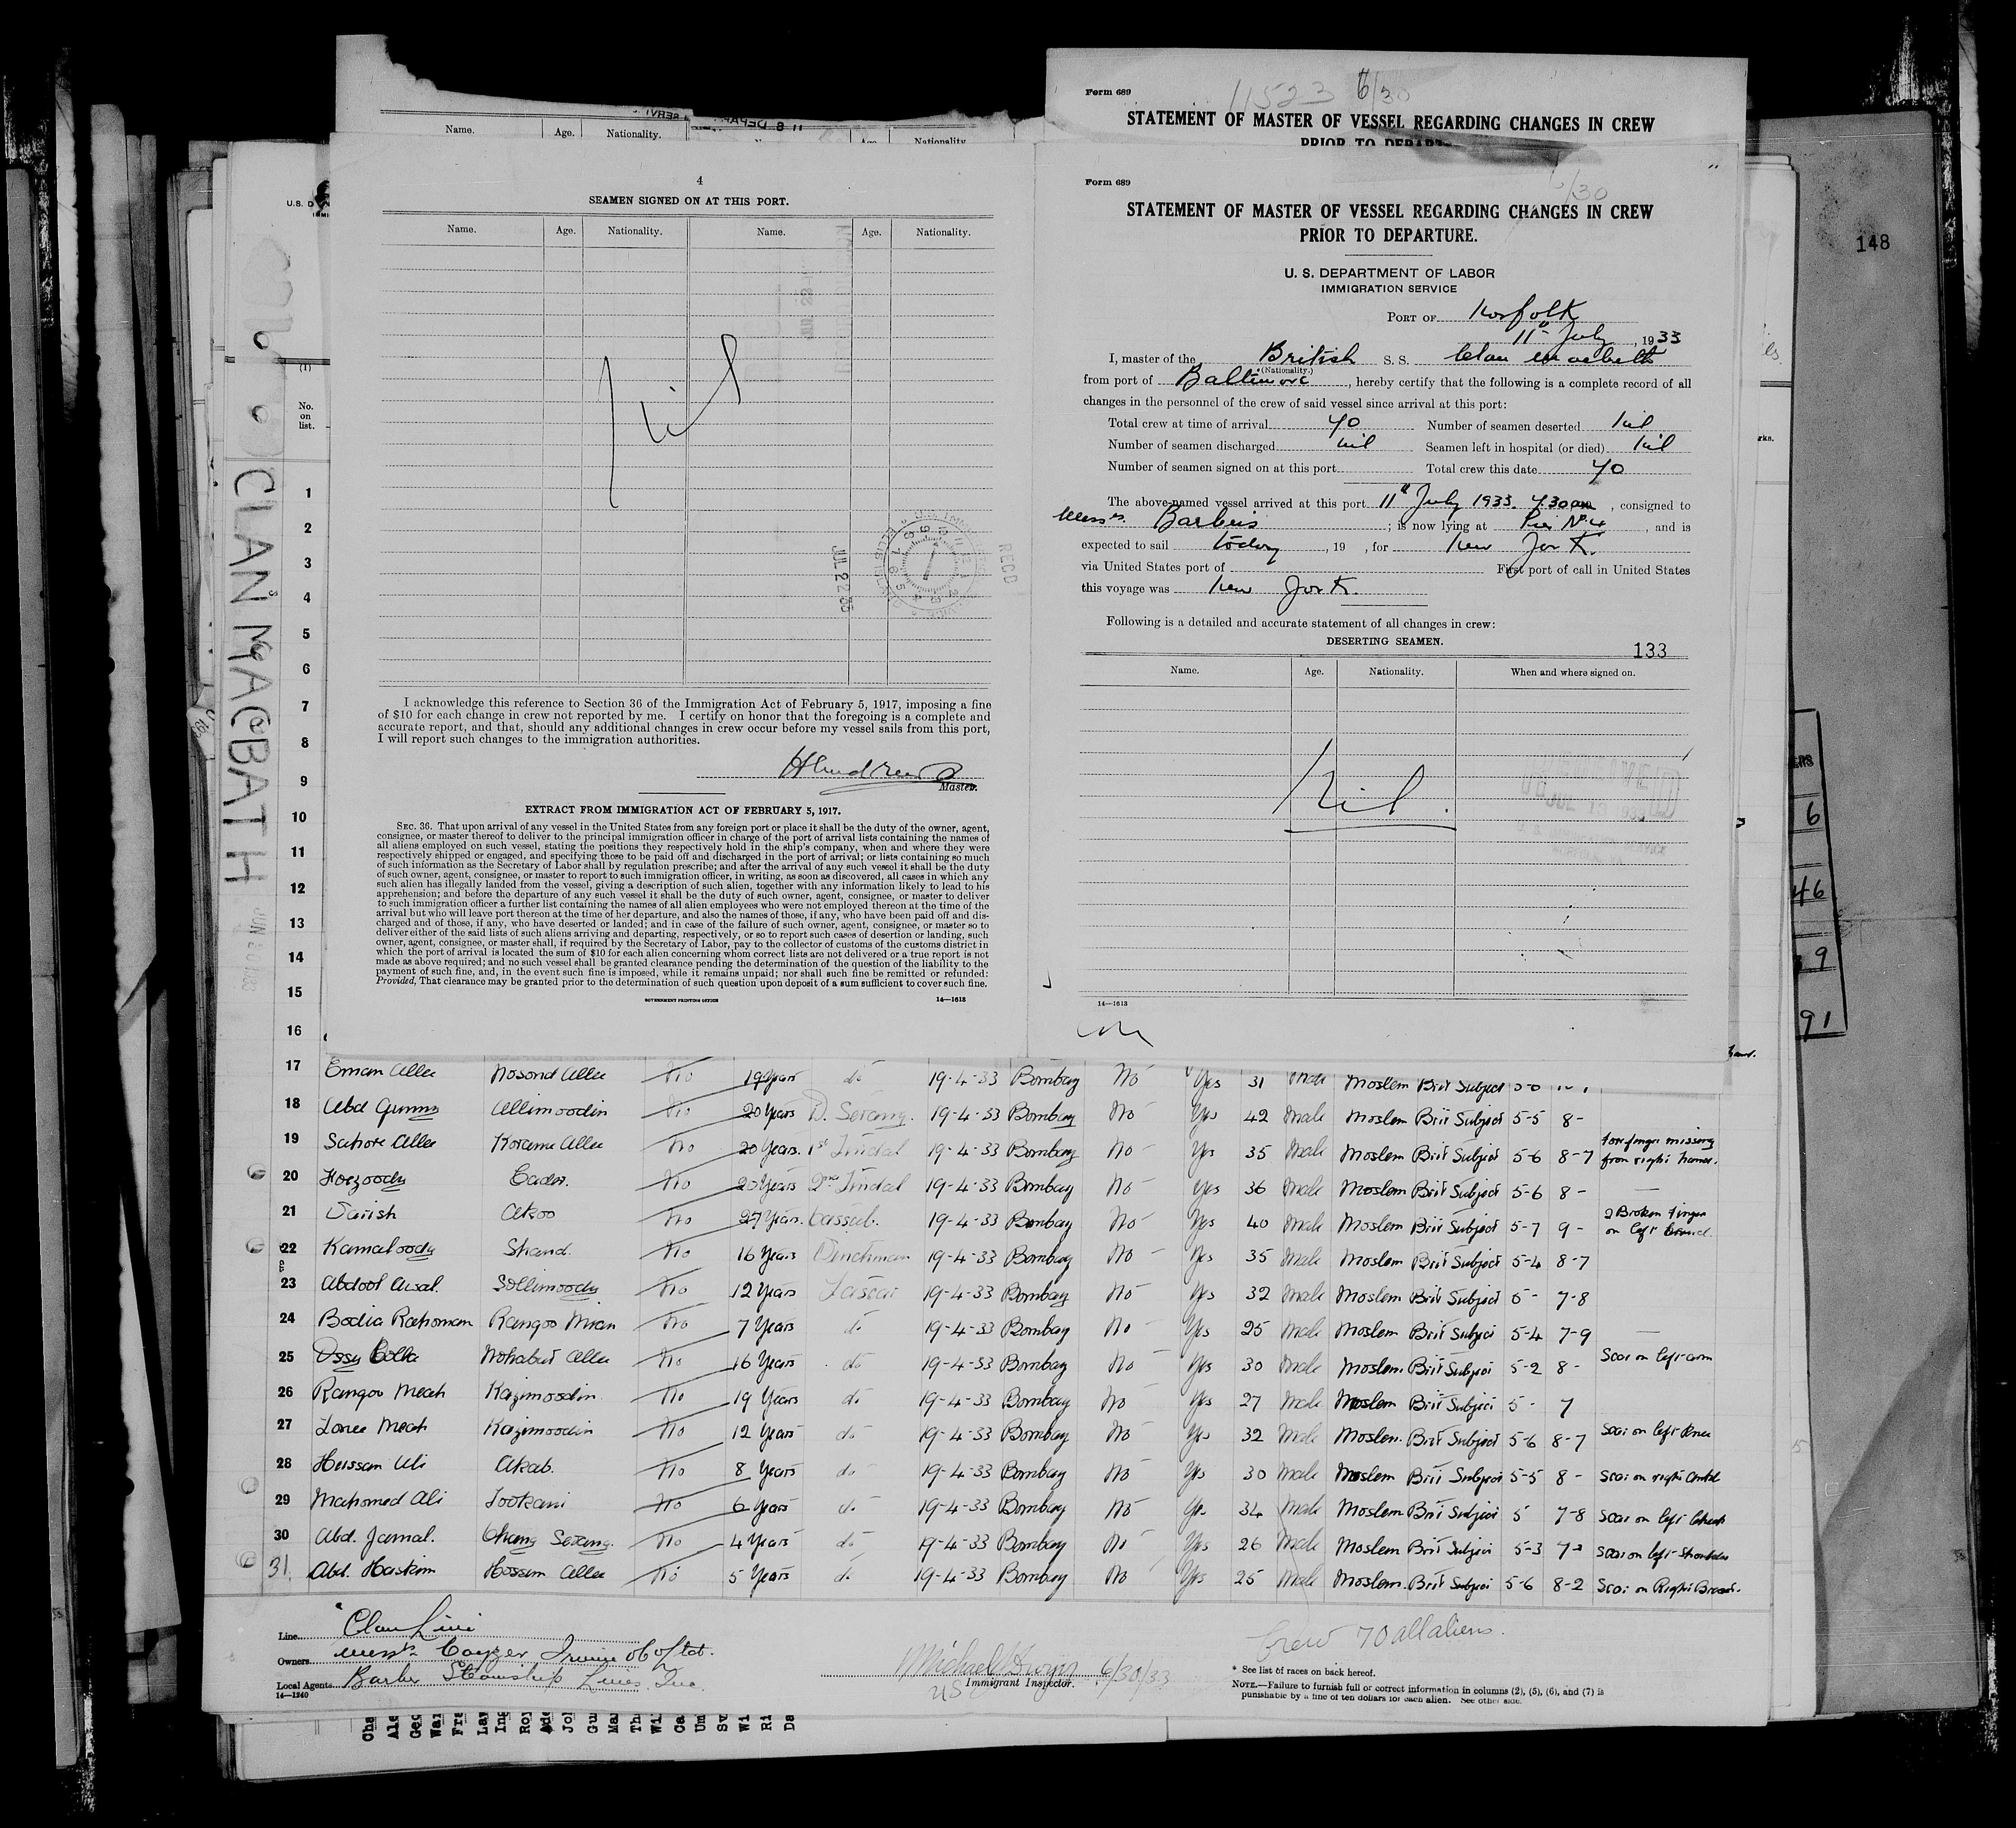 Form 689
11523 6/30
STATEMENT OF MASTER OF VESSEL REGARDING CHANGES IN CREW
PRIOR TO DEPART
Name. Age. Nationality.
Nationality
148
U.S. D
(1)
No.
on
list.
CLAN MACBATH
4
SEAMEN SIGNED ON AT THIS PORT.
Name. Age. Nationality. Name. Age. Nationality.
Nil
JUL 22 33
RECD
I acknowledge this reference to Section 36 of the Immigration Act of February 5, 1917, imposing a fine
of $10 for each change in crew not reported by me. I certify on honor that the foregoing is a complete and
accurate report, and that, should any additional changes in crew occur before my vessel sails from this port,
I will report such changes to the immigration authorities.
Master.
EXTRACT FROM IMMIGRATION ACT OF FEBRUARY 5, 1917.
SEC. 36. That upon arrival of any vessel in the United States from any foreign port or place it shall be the duty of the owner, agent,
consignee, or master thereof to deliver to the principal immigration officer in charge of the port of arrival lists containing the names of
all aliens employed on such vessel, stating the positions they respectively hold in the ship's company, when and where they were
respectively shipped or engaged, and specifying those to be paid off and discharged in the port of arrival; or lists containing so much
of such information as the Secretary of Labor shall by regulation prescribe; and after the arrival of any such vessel it shall be the duty
of such owner, agent, consignee, or master to report to such immigration officer, in writing, as soon as discovered, all cases in which any
such alien has illegally landed from the vessel, giving a description of such alien, together with any information likely to lead to his
apprehension; and before the departure of any such vessel it shall be the duty of such owner, agent, consignee, or master to deliver
to such immigration officer a further list containing the names of all alien employees who were not employed thereon at the time of the
arrival but who will leave port thereon at the time of her departure, and also the names of those, if any, who have been paid off and dis-
charged and of those, if any, who have deserted or landed; and in case of the failure of such owner, agent, consignee, or master so to
deliver either of the said lists of such aliens arriving and departing, respectively, or so to report such cases of desertion or landing, such
owner, agent, consignee, or master shall, if required by the Secretary of Labor, pay to the collector of customs of the customs district in
which the port of arrival is located the sum of $10 for each alien concerning whom correct lists are not delivered or a true report is not
made as above required; and no such vessel shall be granted clearance pending the determination of the question of the liability to the
payment of such fine, and, in the event such fine is imposed, while it remains unpaid; nor shall such fine be remitted or refunded:
Provided, That clearance may be granted prior to the determination of such question upon deposit of a sum sufficient to cover such fine.
GOVERNMENT PRINTING OFFICE 14—1613
Form 689
/30
STATEMENT OF MASTER OF VESSEL REGARDING CHANGES IN CREW
PRIOR TO DEPARTURE.
U. S. DEPARTMENT OF LABOR
IMMIGRATION SERVICE
PORT OF Norfolk
11th July, 1933
I, master of the British S. S. Clan Macbeth
(Nationality.)
from port of Baltimore, hereby certify that the following is a complete record of all
changes in the personnel of the crew of said vessel since arrival at this port:
Total crew at time of arrival 70 Number of seamen deserted Nil
Number of seamen discharged Nil Seamen left in hospital (or died) Nil
Number of seamen signed on at this port Total crew this date 70
The above-named vessel arrived at this port 11th July 1933. 7.30am, consigned to
Messrs. Barbers; is now lying at Pier No. 4, and is
expected to sail today, 19 , for New York.
via United States port of First port of call in United States
this voyage was New York.
Following is a detailed and accurate statement of all changes in crew:
DESERTING SEAMEN.
133
Name. Age. Nationality. When and where signed on.
Nil.
14—1613
1
2
3
4
5
6
7
8
9
10
11
12
13
14
15
16
6
46
39
91
17 Eman Allee Nosond Allee No 19 Years do 19-4-33 Bombay No Yes 31 Male Moslem Brit Subject
18 Abd Gunny Allimoodin No 20 Years D. Serang. 19-4-33 Bombay No Yes 42 Male Moslem Brit Subject 5-5 8-
19 Sahore Allee Korame Allee No 20 Years. 1st Tindal 19-4-33 Bombay No Yes 35 Male Moslem Brit Subject 5-6 8-7 forefinger missing from right hand.
20 Foezoody Cader. No 20 Years 2nd Tindal 19-4-33 Bombay No Yes 36 Male Moslem Brit Subject 5-6 8-
21 Darish Akoo No 27 Years. Cassab. 19-4-33 Bombay No Yes 40 Male Moslem Brit Subject 5-7 9- 2 Broken finger on left hand.
22 Kamaloody Shand. No 16 Years Winchman 19-4-33 Bombay No Yes 35 Male Moslem Brit Subject 5-4 8-7
23 Abdool Ausal. Sollimoody No 12 Years Lascar 19-4-33 Bombay No Yes 32 Male Moslem Brit Subject 5- 7-8
24 Bodia Rahoman Rangoo Mian No 7 Years do 19-4-33 Bombay No Yes 25 Male Moslem Brit Subject 5-4 7-9
25 Ossy Colla Mohabut Allee No 16 Years do 19-4-33 Bombay No Yes 30 Male Moslem. Brit Subject 5-2 8- Scar on left arm
26 Rangoo Meah Kazimoodin No 19 Years do 19-4-33 Bombay No Yes 27 Male Moslem Brit Subject 5- 7
27 Lonee Meah Kazimoodin No 12 Years do 19-4-33 Bombay No Yes 32 Male Moslem. Brit Subject 5-6 8-7 Scar on left knee
28 Hossam Ali Akab. No 8 Years do 19-4-33 Bombay No Yes 30 Male Moslem Brit Subject 5-5 8- Scar on right
29 Mahomed Ali Tookani No 6 Years do 19-4-33 Bombay No Yes 34 Male Moslem Brit Subject 5 7-8 Scar on left Cheek
30 Abd. Jamal. Chang Serang. No 4 Years do 19-4-33 Bombay No Yes 26 Male Moslem Brit Subject 5-3 Scar on left shoulder
31. Abd. Haskim Hossem Allee No 5 Years do 19-4-33 Bombay No Yes 25 Male Moslem. Brit Subject 5-6 8-2 Scar on Right
Line Clan Line
Owners Messrs Cayzer Irvine & Co Ltd.
Local Agents Barber Steamship Lines Inc.
14—1240
6/30/33
US Immigrant Inspector.
Crew 70 all aliens.
* See list of races on back hereof.
NOTE.—Failure to furnish full or correct information in columns (2), (5), (6), and (7) is
punishable by a fine of ten dollars for each alien. See other side.